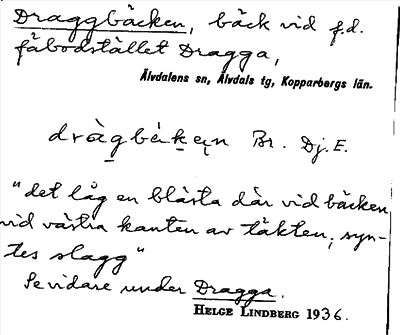 Draggbäcken, bäck vid f.d.
fäbodstället Dragga,
Älvdalens sn, Älvdals tg, Kopparbergs län.
dràgbèkęn Br. Dj. E.
"det låg en blästa där vid bäcken
vid västra kanten av täkten; syn-
tes slagg"
Se vidare under Dragga.
HELGE LINDBERG 1936.